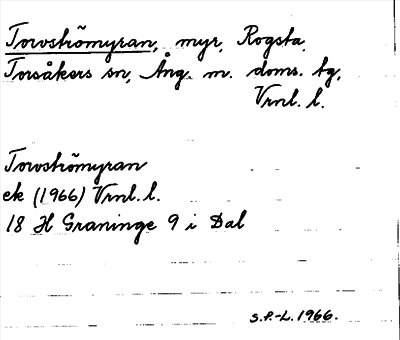 Torvströmyran, myr, Rogsta,
Torsåkers sn, Ång. m. doms. tg,
Vrnl. l.
Torvströmyran
ek (1966) Vrnl. l.
18 H Graninge 9 i Dal
S.P.-L. 1966.